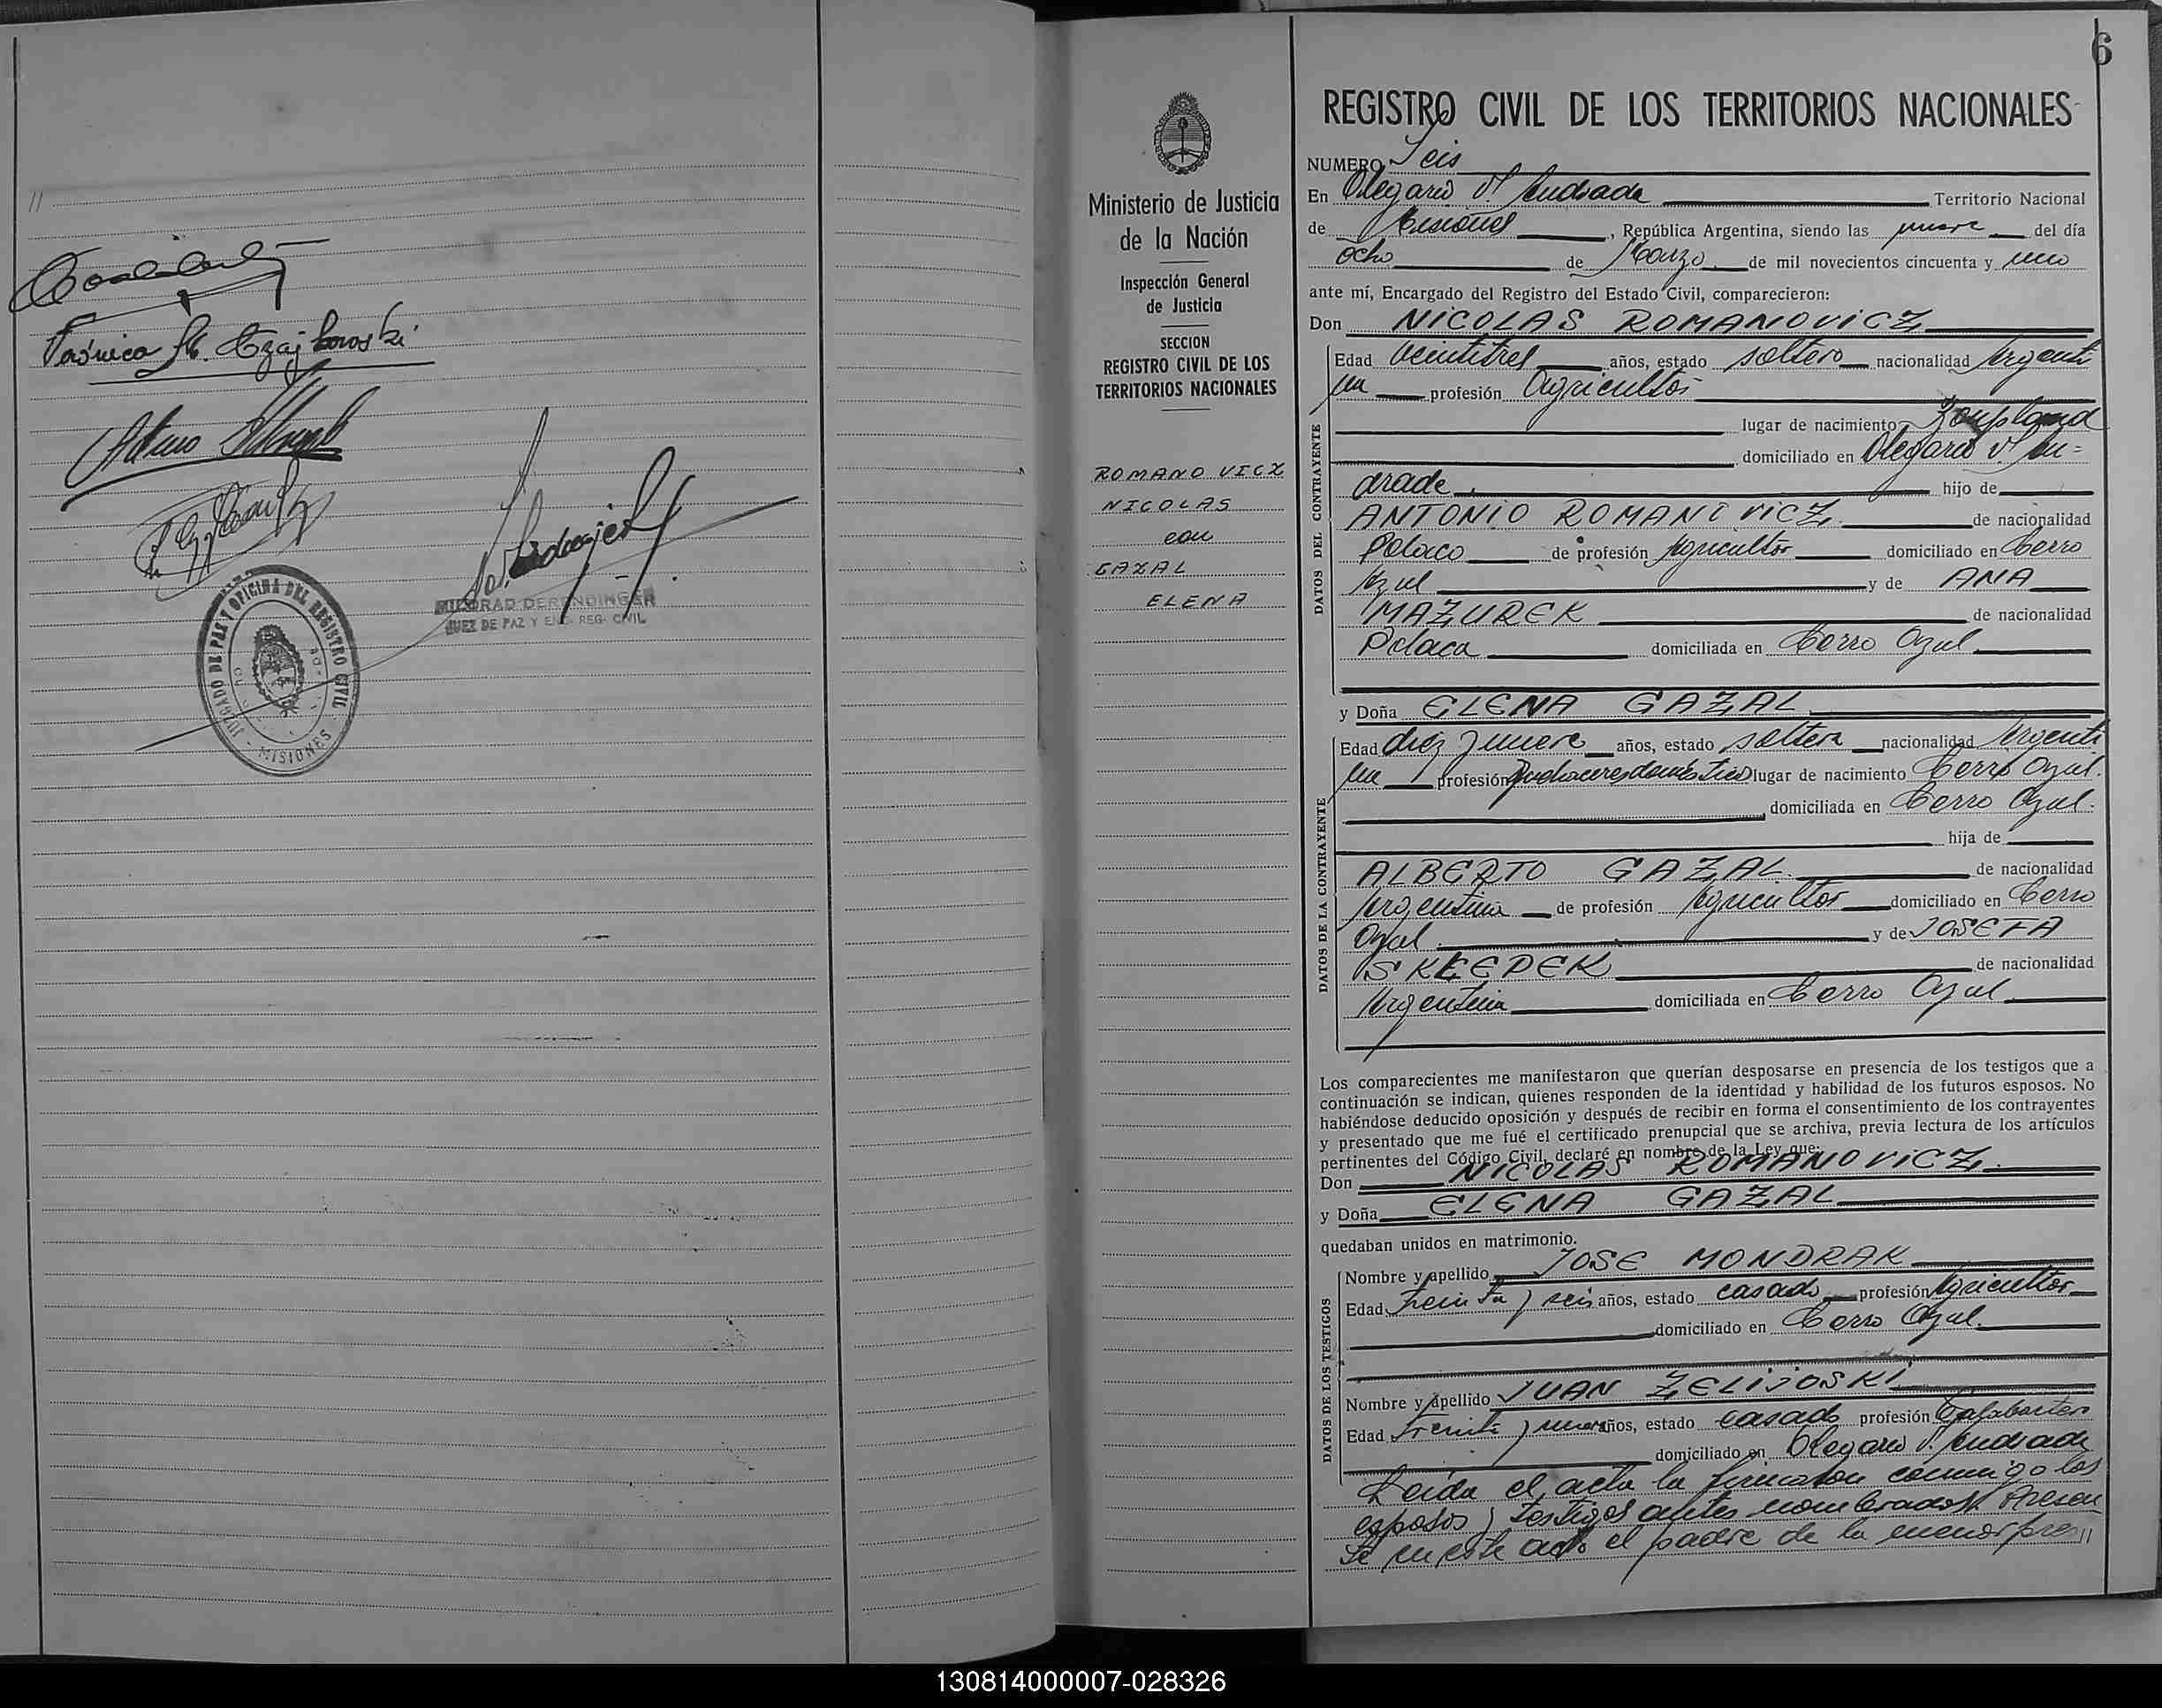 //
Verónica M. Czajkowski
Arturo
MILORAD DERENDINGER
JUEZ DE PAZ Y ENC. REG. CIVIL
JUZGADO DE PAZ Y OFICINA DEL REGISTRO CIVIL
- MISIONES
Ministerio de Justicia
de la Nación
Inspección General
de Justicia
SECCION
REGISTRO CIVIL DE LOS
TERRITORIOS NACIONALES
ROMANOVICZ
NICOLAS
con
GAZAL
ELENA
6
REGISTRO CIVIL DE LOS TERRITORIOS NACIONALES
NUMERO Seis
En Olegario V. Andrade Territorio Nacional
de Misiones, República Argentina, siendo las nueve del día
ocho de Marzo de mil novecientos cincuenta y uno
ante mí, Encargado del Registro del Estado Civil, comparecieron:
Don NICOLAS ROMANOVICZ
Edad veintitres años, estado soltero nacionalidad Argenti
na profesión Agricultor
lugar de nacimiento
domiciliado en Olegario V. An=
drade. hijo de
ANTONIO ROMANOVICZ de nacionalidad
Polaco de profesión Agricultor domiciliado en Cerro
Azul y de ANA
MAZUREK de nacionalidad
Polaca domiciliada en Cerro Azul
y Doña ELENA GAZAL
Edad diez y nueve años, estado soltera nacionalidad Argenti
na profesión Quehaceres domésticos lugar de nacimiento Cerro Azul.
domiciliada en Cerro Azul.
hija de
ALBERTO GAZAL de nacionalidad
Argentina de profesión Agricultor domiciliado en Cerro
Azul y de JOSEFA
SKLEPEK de nacionalidad
Argentina domiciliada en Cerro Azul
DATOS DEL CONTRAYENTE
DATOS DE LA CONTRAYENTE
Los comparecientes me manifestaron que querían desposarse en presencia de los testigos que a
continuación se indican, quienes responden de la identidad y habilidad de los futuros esposos. No
habiéndose deducido oposición y después de recibir en forma el consentimiento de los contrayentes
y presentado que me fué el certificado prenupcial que se archiva, previa lectura de los artículos
pertinentes del Código Civil, declaré en nombre de la Ley que:
Don NICOLAS ROMANOVICZ
y Doña ELENA GAZAL
quedaban unidos en matrimonio.
Nombre y apellido JOSE MONDRAK
Edad treinta y seis años, estado casado profesión Agricultor
domiciliado en Cerro Azul.
Nombre y apellido JUAN ZELIJOSKI
Edad treinta y nueve años, estado casado profesión Talabartero
domiciliado en Olegario V. Andrade
DATOS DE LOS TESTIGOS
Leida el acta la firmaron conmigo los
esposos y testigos antes nombrados. Presen
te en este acto el padre de la menor pres//
130814000007-028326